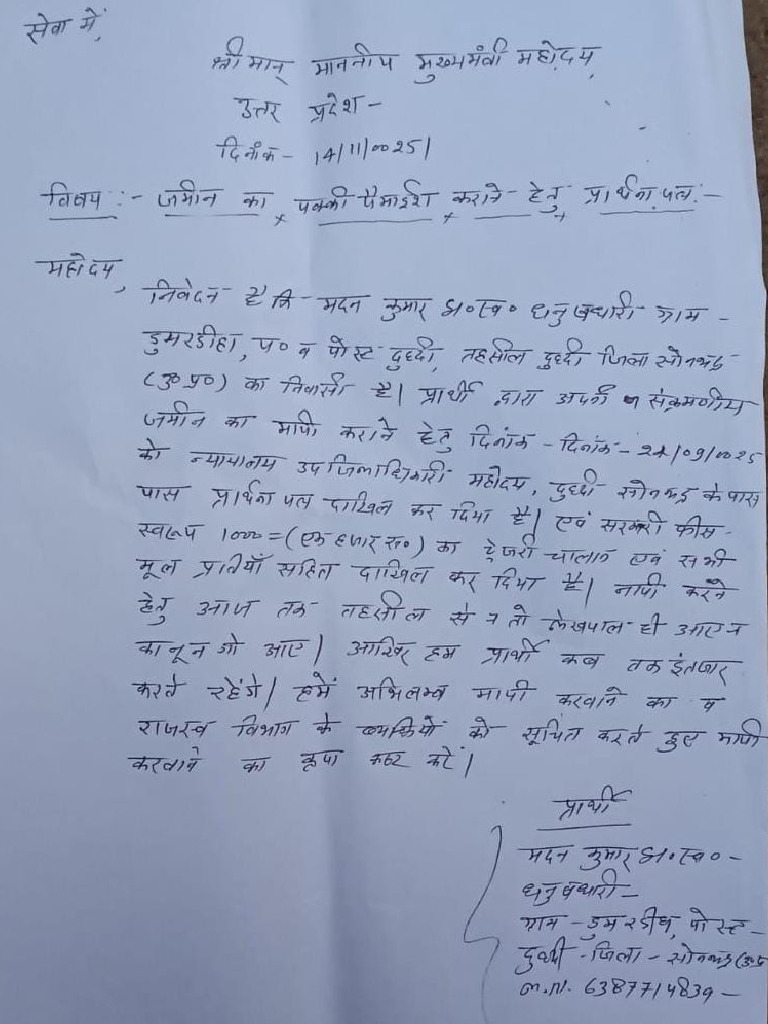 सेवा में,
श्रीमान् माननीय मुख्यमंत्री महोदय,
उत्तर प्रदेश -
दिनाँक - 14/11/0025/
विषय :- जमीन का पक्की पैमाईश कराने हेतु प्रार्थना पत्र :-
महोदय,
निवेदन है कि मदन कुमार S०स्व० धनुषधारी ग्राम -
डुमरडीहा, प० व पोस्ट दुद्धी, तहसील दुद्धी जिला सोनभद्र
(उ०प्र०) का निवासी है। प्रार्थी द्वारा अपनी संक्रमणीय
जमीन का मापी कराने हेतु दिनांक - दिनांक - 24/09/0025
को न्यायालय उपजिलाधिकारी महोदय, दुद्धी सोनभद्र के पास
पास प्रार्थना पत्र दाखिल कर दिया है। एवं सरकारी फीस
स्वरूप 1000=(एक हजार रु०) का ट्रेजरी चालान एवं सभी
मूल प्रतियाँ सहित दाखिल कर दिया है। नापी करने
हेतु आज तक तहसील से न तो लेखपाल ही आए न
कानून गो आए। आखिर हम प्रार्थी कब तक इंतजार
करते रहेंगे। हमें अभिलम्ब मापी करवाने का व
राजस्व विभाग के व्यक्तियों को सूचित करते हुए मापी
करवाने का कृपा कष्ट करें।
प्रार्थी
मदन कुमार S०स्व० -
धनुषधारी -
ग्राम - डुमरडीहा, पोस्ट -
दुद्धी - जिला - सोनभद्र (उ०प्र
मो.नं. 6387714839 -